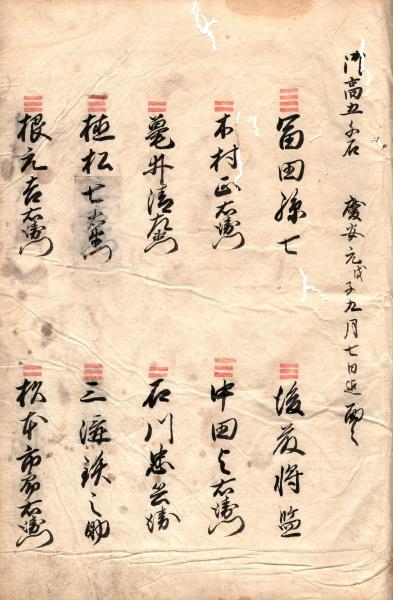 御高五千石 慶安元戊子九月七日
冨田孫七
後藤将監
木村正右衛門
中田与右衛門
亀井清左衛門
石川忠兵衛
植松七左衛門
三浦鉄之助
根元吉右衛門
松本市郎右衛門